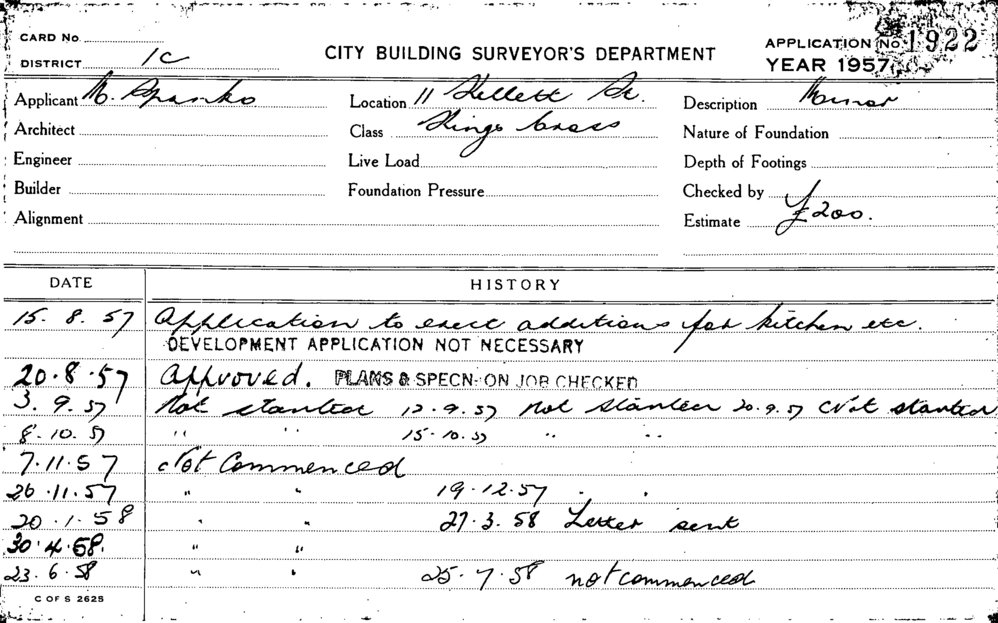 CARD No.
DISTRICT 1C
CITY BUILDING SURVEYOR'S DEPARTMENT
APPLICATION No. 1922
YEAR 1957
Applicant M. Spanko Location 11 Kellett St. Description Minor
Architect Class Kings Cross Nature of Foundation
Engineer Live Load Depth of Footings
Builder Foundation Pressure Checked by
Alignment Estimate £200.
DATE HISTORY
15. 8. 57 Application to erect additions for kitchen etc.
DEVELOPMENT APPLICATION NOT NECESSARY
20.8.57 Approved. PLANS & SPECN. ON JOB CHECKED
3. 9. 57 Not started 12.9.57 Not started 20.9.57 Not started
8.10.57 " " 15.10.57 " "
7.11.57 Not Commenced
26.11.57 " " 19.12.57 " "
20.1.58 " " 27.3.58 Letter sent
30.4.58. " "
23.6.58 " " 25.7.58 not commenced
C OF S 2625